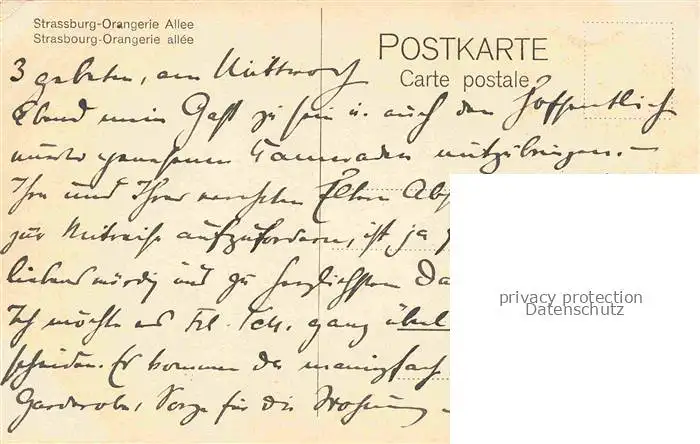 Strassburg-Orangerie Allee
Strasbourg-Orangerie allée
POSTKARTE
Carte postale
3 gebeten, am Mittwoch
Abend mein Gast zu sein u. auch den hoffentlich
genesenen Kameraden mitzubringen.—
Ihn und Ihre verehrten Eltern
zur Mitreise aufzufordern, ist ja
liebenswürdig und zu herzlichstem Da
Ich möchte es Frl. Tch. ganz übel
scheiden. Es kommen da mannigfach
Garderobe, Sorge für die Wohnung
privacy protection
Datenschutz